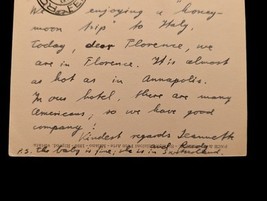 We enjoying a "honey-
moon trip" to Italy.
Today, dear Florence, we
are in Florence. It is almost
as hot as in Annapolis.
In our hotel, there are many
Americans; so we have good
company!
Kindest regards Jeannette
and
P.S. The baby is fine; she is in Switzerland.